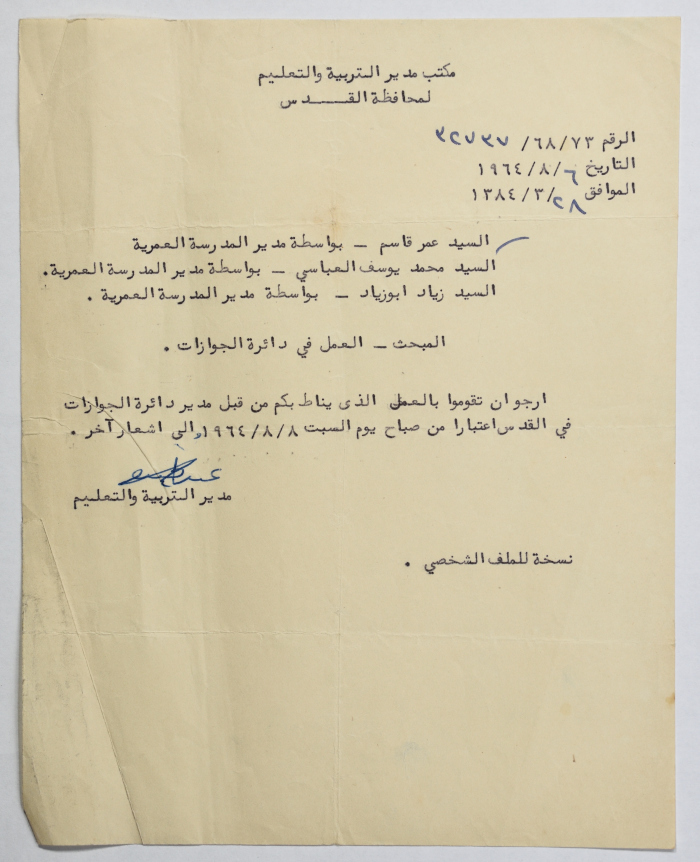 مكتب مدير التربية والتعليم
لمحافظة القـــدس
الرقم ٦٨/٧٣/ ٣٢٧٣٧
التاريخ ٦/٨/١٩٦٤
الموافق ٢٨/٣/١٣٨٤
السيد عمر قاسم – بواسطة مدير المدرسة العمرية
السيد محمد يوسف العباسي – بواسطة مدير المدرسة العمرية.
السيد زياد ابوزياد – بواسطة مدير المدرسة العمرية .
المبحث – العمل في دائرة الجوازات .
ارجو ان تقوموا بالعمل الذى يناط بكم من قبل مدير دائرة الجوازات
في القدس اعتبارا من صباح يوم السبت ٨/٨/١٩٦٤ والى اشعار آخر .
مدير التربية والتعليم
نسخة للملف الشخصي .